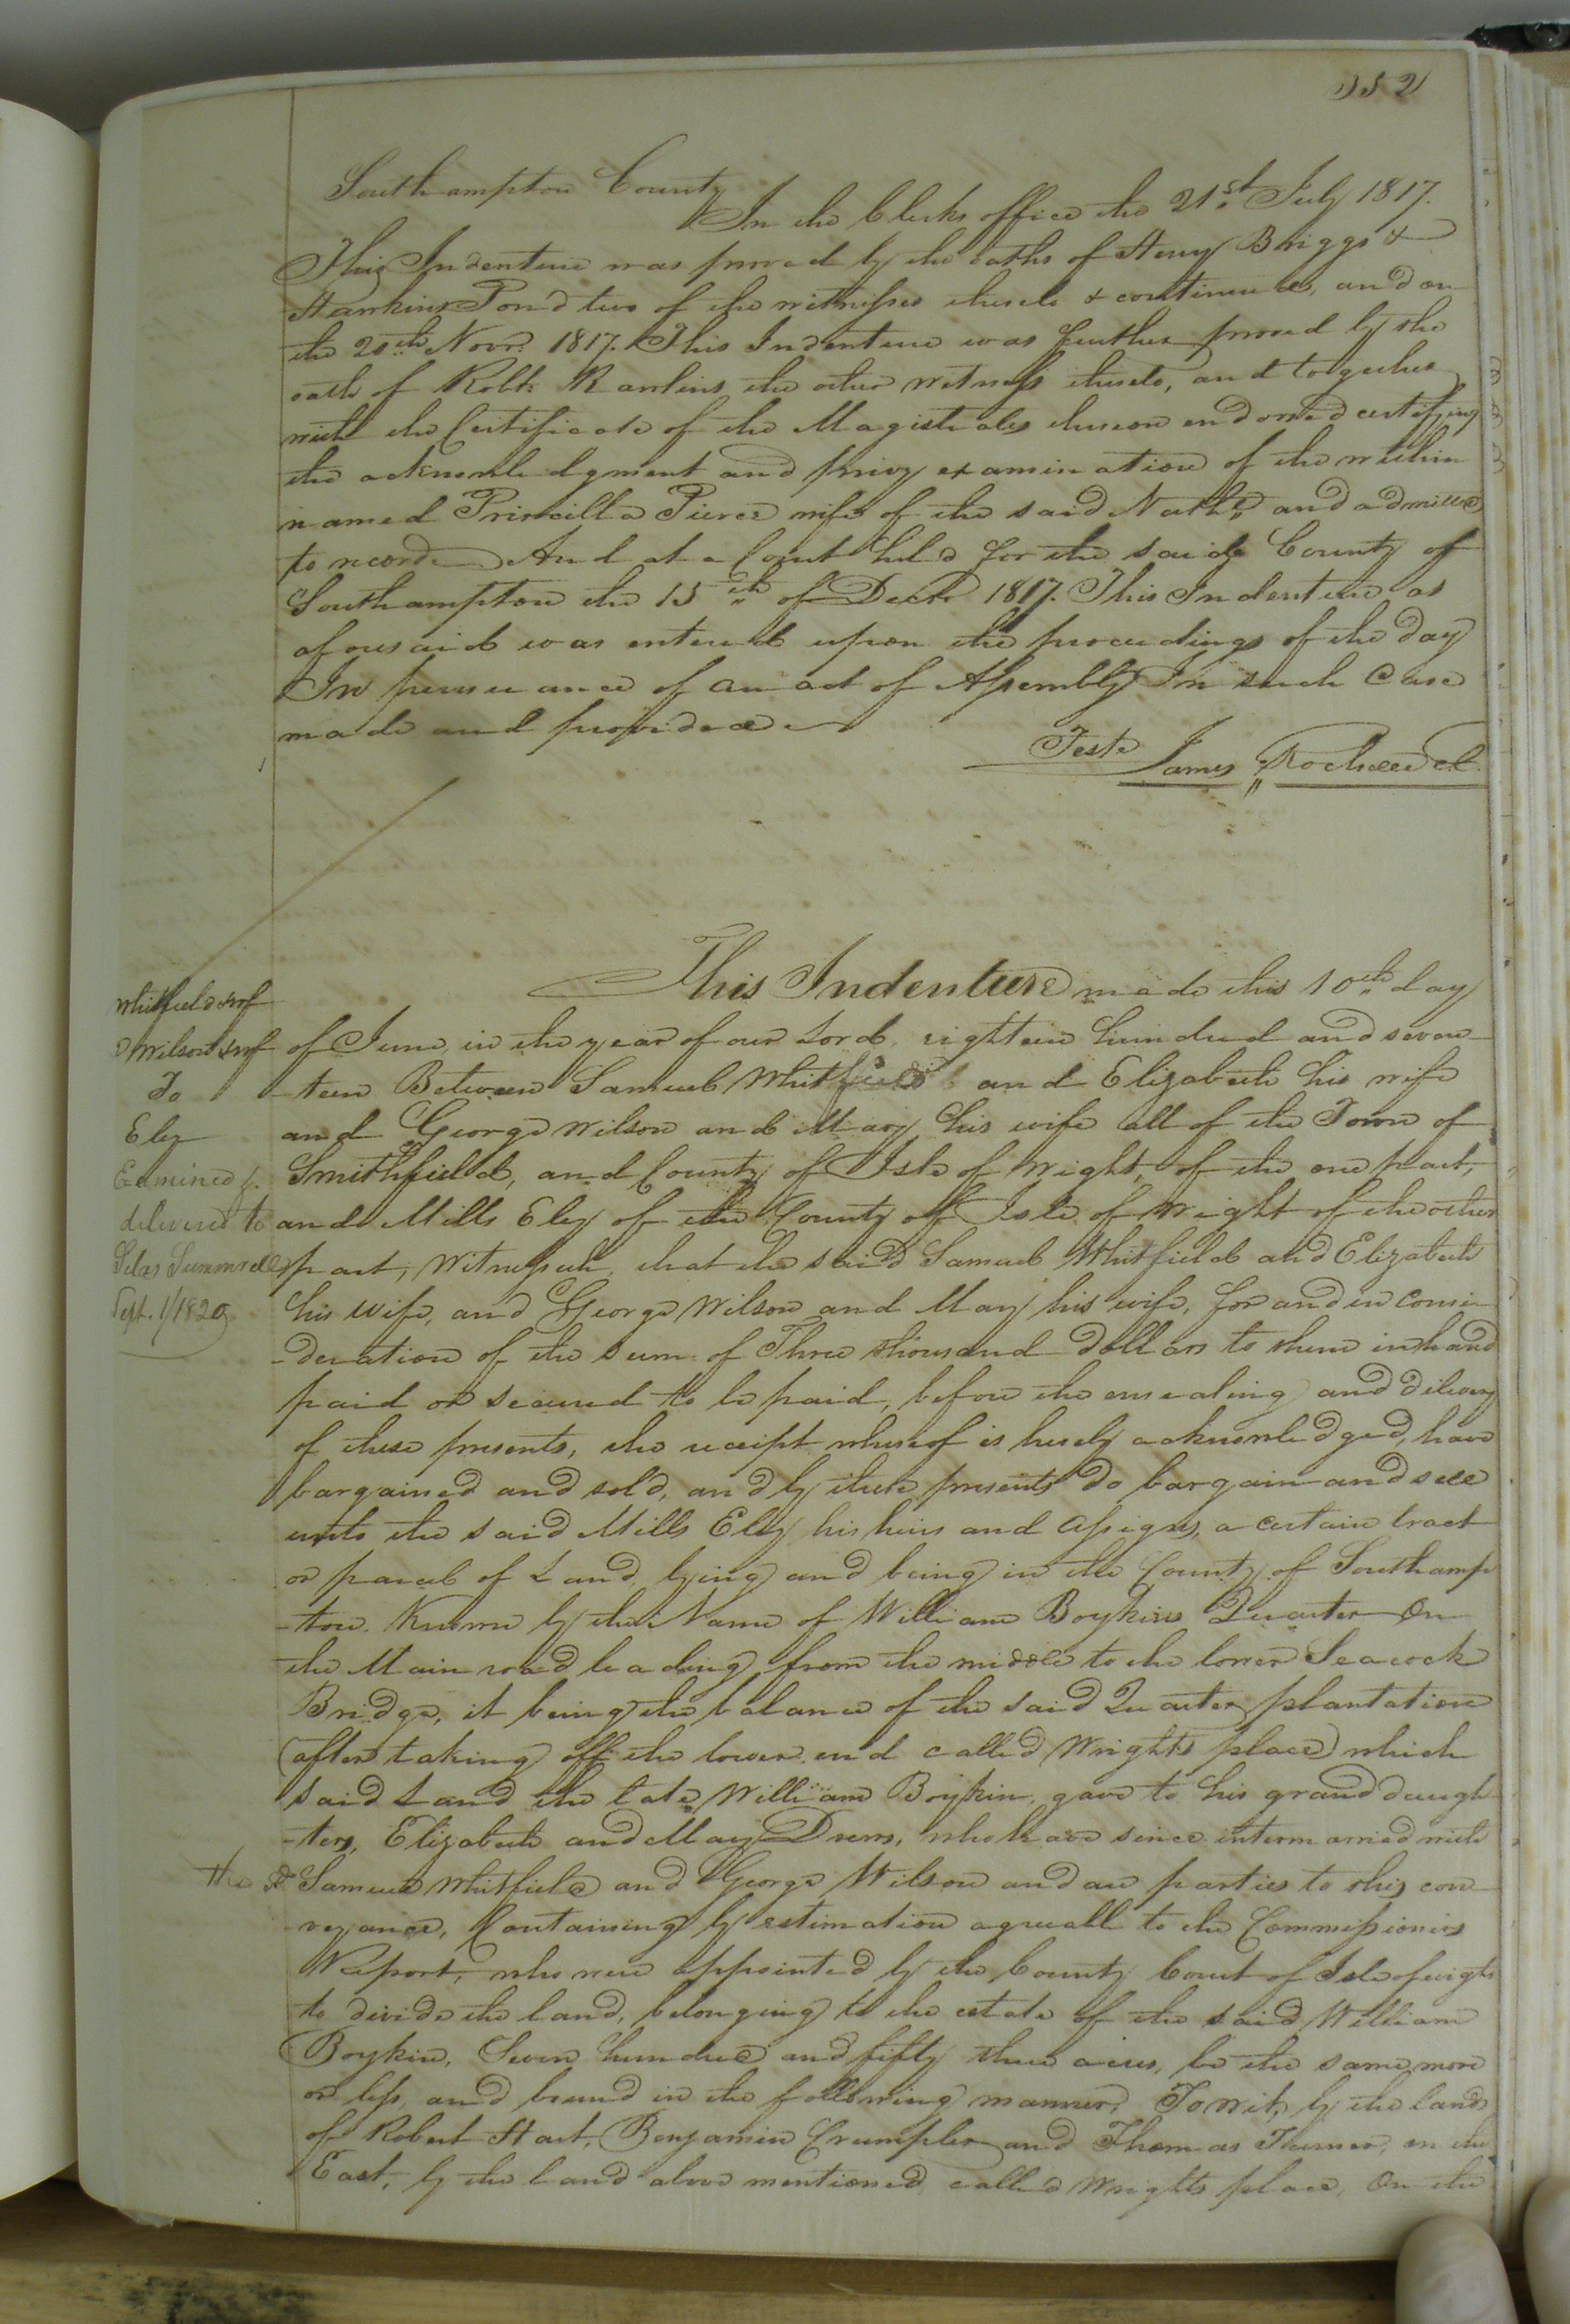 352
Southampton County
In the Clerks office the 21st July 1817.
This Indenture was proved by the oaths of Henry Briggs &
Hawkins Pond two of the witnesses thereto & continued, and on
the 20th Novr. 1817. This Indenture was further proved by the
oath of Robt. Rawlins the other witness thereto, and together
with the Certificate of the Magistrates thereon endorsed certifying
the acknowledgment and privy examination of the within
named Priscilla Pierce wife of the said Nathl. and admitted
to record And at a Court held for the said County of
Southampton the 15th of Decr. 1817. This Indenture as
aforesaid was entered upon the proceedings of the day
In pursuance of an act of Assembly In such Case
made and provided
Teste James Rochelle C.
Whitfield & wf
Wilson & wf
To
Ely
Examined &
delivered to
Silas Summrell
Sept. 1/1820
This Indenture made this 10th day
of June, in the year of our Lord, eighteen hundred and seven-
-teen Between Samuel Whitfield and Elizabeth his wife
and George Wilson and Mary his wife all of the Town of
Smithfield, and County of Isle of Wight, of the one part,
and Mills Ely of the County of Isle of Wight of the other
part, Witnesseth, that the said Samuel Whitfield and Elizabeth
his wife, and George Wilson and Mary his wife, for and in consi-
-deration of the sum of Three thousand dollars to them in hand
paid or secured to be paid, before the ensealing and delivery
of these presents, the receipt whereof is hereby acknowledged, have
bargained and sold, and by these presents do bargain and sell
unto the said Mills Ely his heirs and assigns, a certain tract
or parcel of Land lying and being in the County of Southamp
-ton. Known by the Name of William Boykins Quarter On
the Main road leading from the middle to the lower Seacock
Bridge, it being the balance of the said Quarter plantation
(after taking off the lower end called Wrights place) which
said Land the late William Boykin, gave to his grand daugh
-ters, Elizabeth and Mary Drew, who have since intermarried with
the Samuel Whitfield and George Wilson and are parties to this con-
veyance, Containing by estimation agreeable to the Commissioners
Report, who were appointed by the County Court of Isle of wight
to divide the land, belonging to the estate of the said William
Boykin, Seven hundred and fifty three acres, be the same more
or less, and bound in the following manner, To wit, by the lands
of Robert Hart, Benjamin Crumpler and Thomas Turner, on the
East, by the land above mentioned called Wrights place, On the